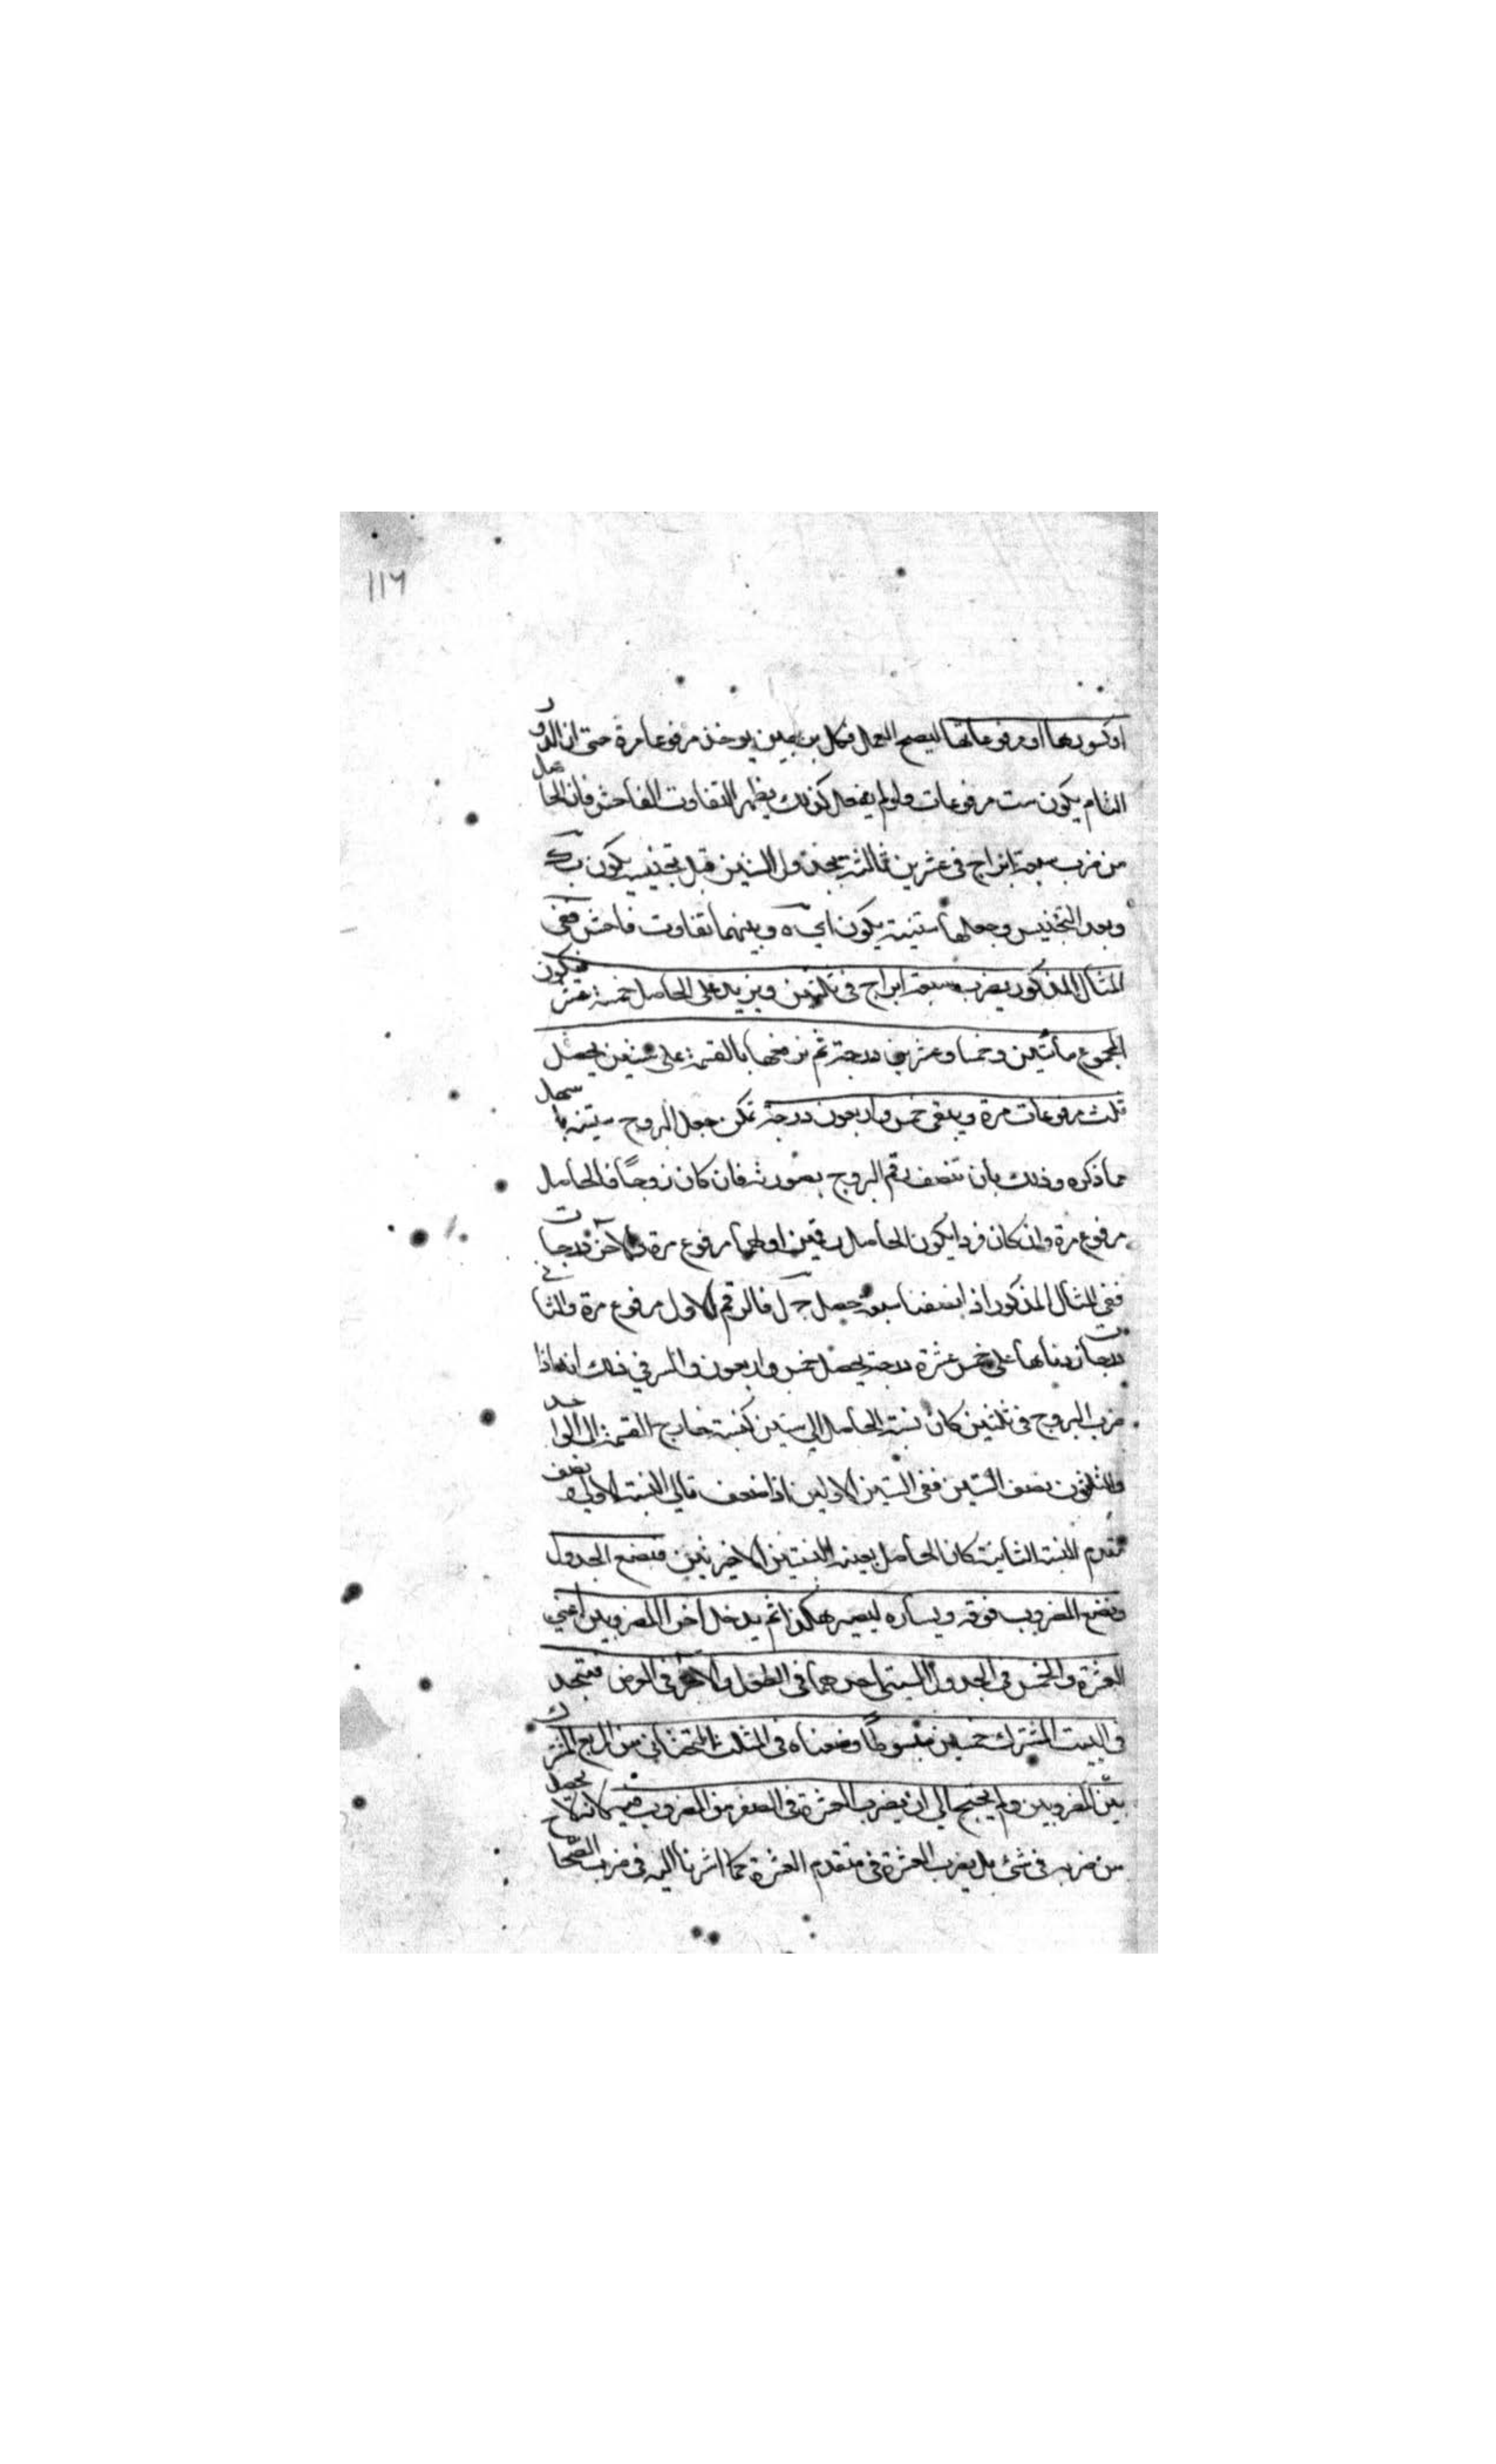 ١١٦
اوكسورها او مرفوعاتها ليصح العمل فكل برجين يوخذ مرفوعا مرة حتى ان الدور
التام يكون ست مرفوعات ولو لم يفعل كذلك يظهر التفاوت الفاحش فان الحاصل
من ضرب سبعة ابراج في عشرين ثالثة بجدول الستين قبل تجنيسه يكون ب ك
وبعد التجنيس وجعلها ستينية يكون وبينهما تفاوت فاحش ففي
المثال المذكور يضرب سبعة ابراج في ثلثين ويزيد على الحاصل خمسة عشر فيكون
المجموع مأتين وخمسا وعشرين درجة ثم نرفعها بالقسمة على ستين يحصل
ثلث مرفوعات مرة ويبقى خمس واربعون درجة يمكن جعل البروج ستينية باسهل
مما ذكره وذلك بان تنصف رقم البروج بصورته فان كان زوجًا فالحاصل
مرفوع مرة وان كان فردا يكون الحاصل رقمين اولهما مرفوع مرة والآخر درجات
ففي المثال المذكور اذا نصفنا سبعة حصل ج ل فالرقم الاول مرفوع مرة والثاني
درجات زدناها على خمس عشرة درجة يحصل خمس واربعون والسر في ذلك انه اذا
ضرب البروج في ثلثين كان نسبة الحاصل الى ستين كنسبة خارج القسمة الى الواحد
والثلثون نصف الستين ففي الستين الاولين اذا ضعف تالي النسبة الاولى و نصف
مقدم النسبة الثانية كان الحاصل بعينه النسبتين الاخيرتين فنضع الجدول
ونضع المضروب فوقه ويساره ليصير هكذا ثم يدخل اخر المضروبين اعني
العشرة والخمس في الجدول الستيني احدهما في الطول والآخر في العرض فنجد
في البيت المشترك خمسين مبسوطًا وضعناه في المثلث التحتاني من المربع المشترك
بين المضروبين ولم يحتج الى ان يضرب العشرة في الصفر من المضروب فيه يحصل
من ضربه في شئ بل يضرب العشرة في متقدم العشرة كما اشرنا اليه في ضرب الصحاح